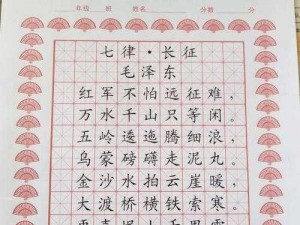 年级 班 姓名 分数 分
七律·长征
毛泽东
红军不怕远征难，
万水千山只等闲。
五岭逶迤腾细浪，
乌蒙磅礴走泥丸。
金沙水拍云崖暖，
大渡桥横铁索寒。
更喜岷山千里雪，